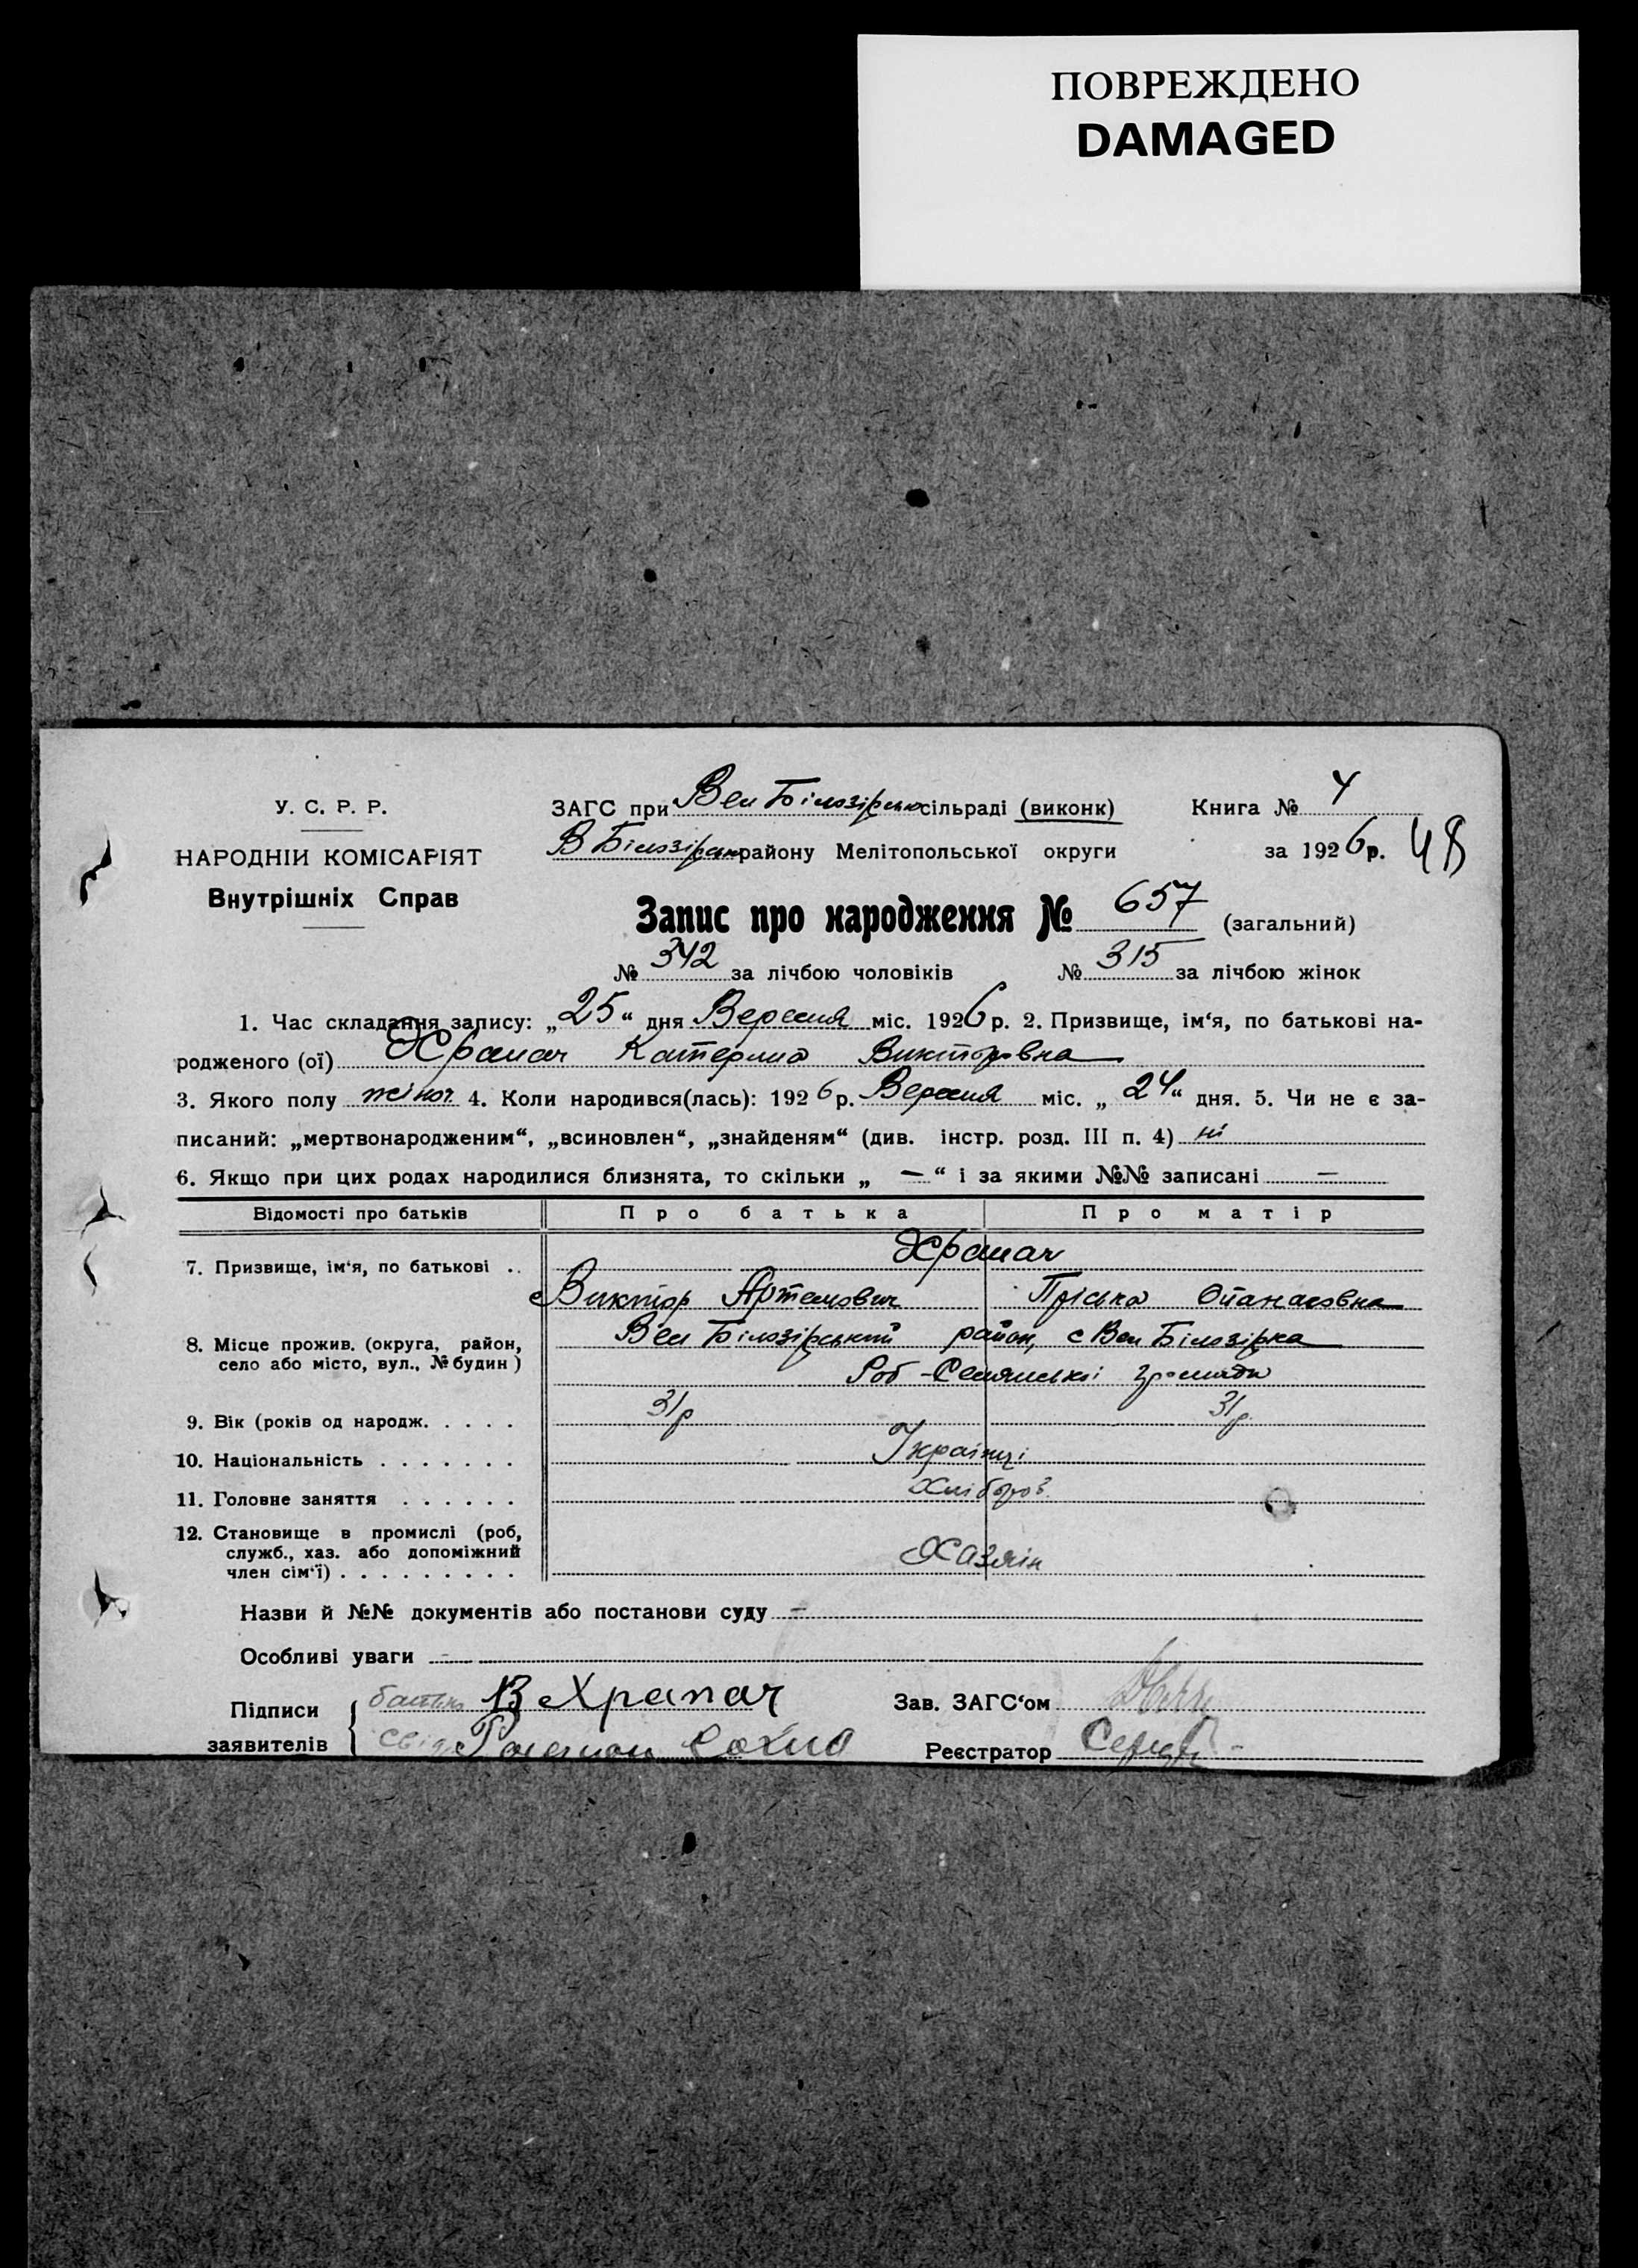 ПОВРЕЖДЕНО
DAMAGED
У. С. Р. Р.
НАРОДНІЙ КОМІСАРІЯТ
Внутрішніх Справ
ЗАГС при Вел Білозірськ сільраді (виконк)
В Білозірськ району Мелітопольської округи
Книга № 4
за 1926 р. 48
Запис про народження № 657 (загальний)
№ 342 за лічбою чоловіків № 315 за лічбою жінок
1. Час складання запису: „25“ дня Вересня міс. 1926 р. 2. Призвище, ім‘я, по батькові на-
родженого (ої) Храпач Катерина Викторовна
3. Якого полу жіноч. 4. Коли народився(лась): 1926 р. Вересня міс. „24“ дня. 5. Чи не є за-
писаний: „мертвонародженим“, „всиновлен“, „знайденям“ (див. інстр. розд. III п. 4) ні
6. Якщо при цих родах народилися близнята, то скільки „ — “ і за якими №№ записані —
Відомості про батьків Про батька Про матір
7. Призвище, ім‘я, по батькові . . Храпач
Виктор Артемович Пріська Опанасовна
8. Місце прожив. (округа, район, село або місто, вул., № будин ) Вел Білозірський район, с Вел Білозірка
Роб - Селянської громади
9. Вік (років од народж. . . . . 31 р 31 р.
10. Національність . . . . . . . Українці
11. Головне заняття . . . . . . Хлібороб.
12. Становище в промислі (роб,
служб., хаз. або допоміжний
член сім‘ї) . . . . . . . . . Хазяін
Назви й №№ документів або постанови суду —
Особливі уваги —
Підписи батько В Храпач Зав. ЗАГС‘ом
заявителів Реєстратор